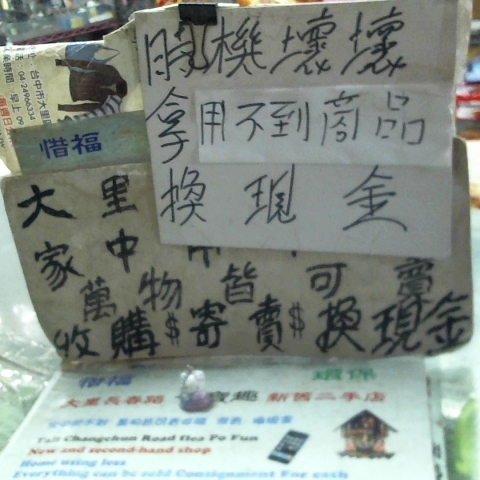 時機壞壞
拿用不到商品
換現金
惜福
台中市大里區
04-24966334
大里
家中
萬物皆可賣
收購$寄賣$換現金
惜福 環保
大里長春路 寶趣 新舊二手店
Tali Changchun Road flea Po Fun
New and second-hand shop
Home using less
Everything can be sold Consignment For cash